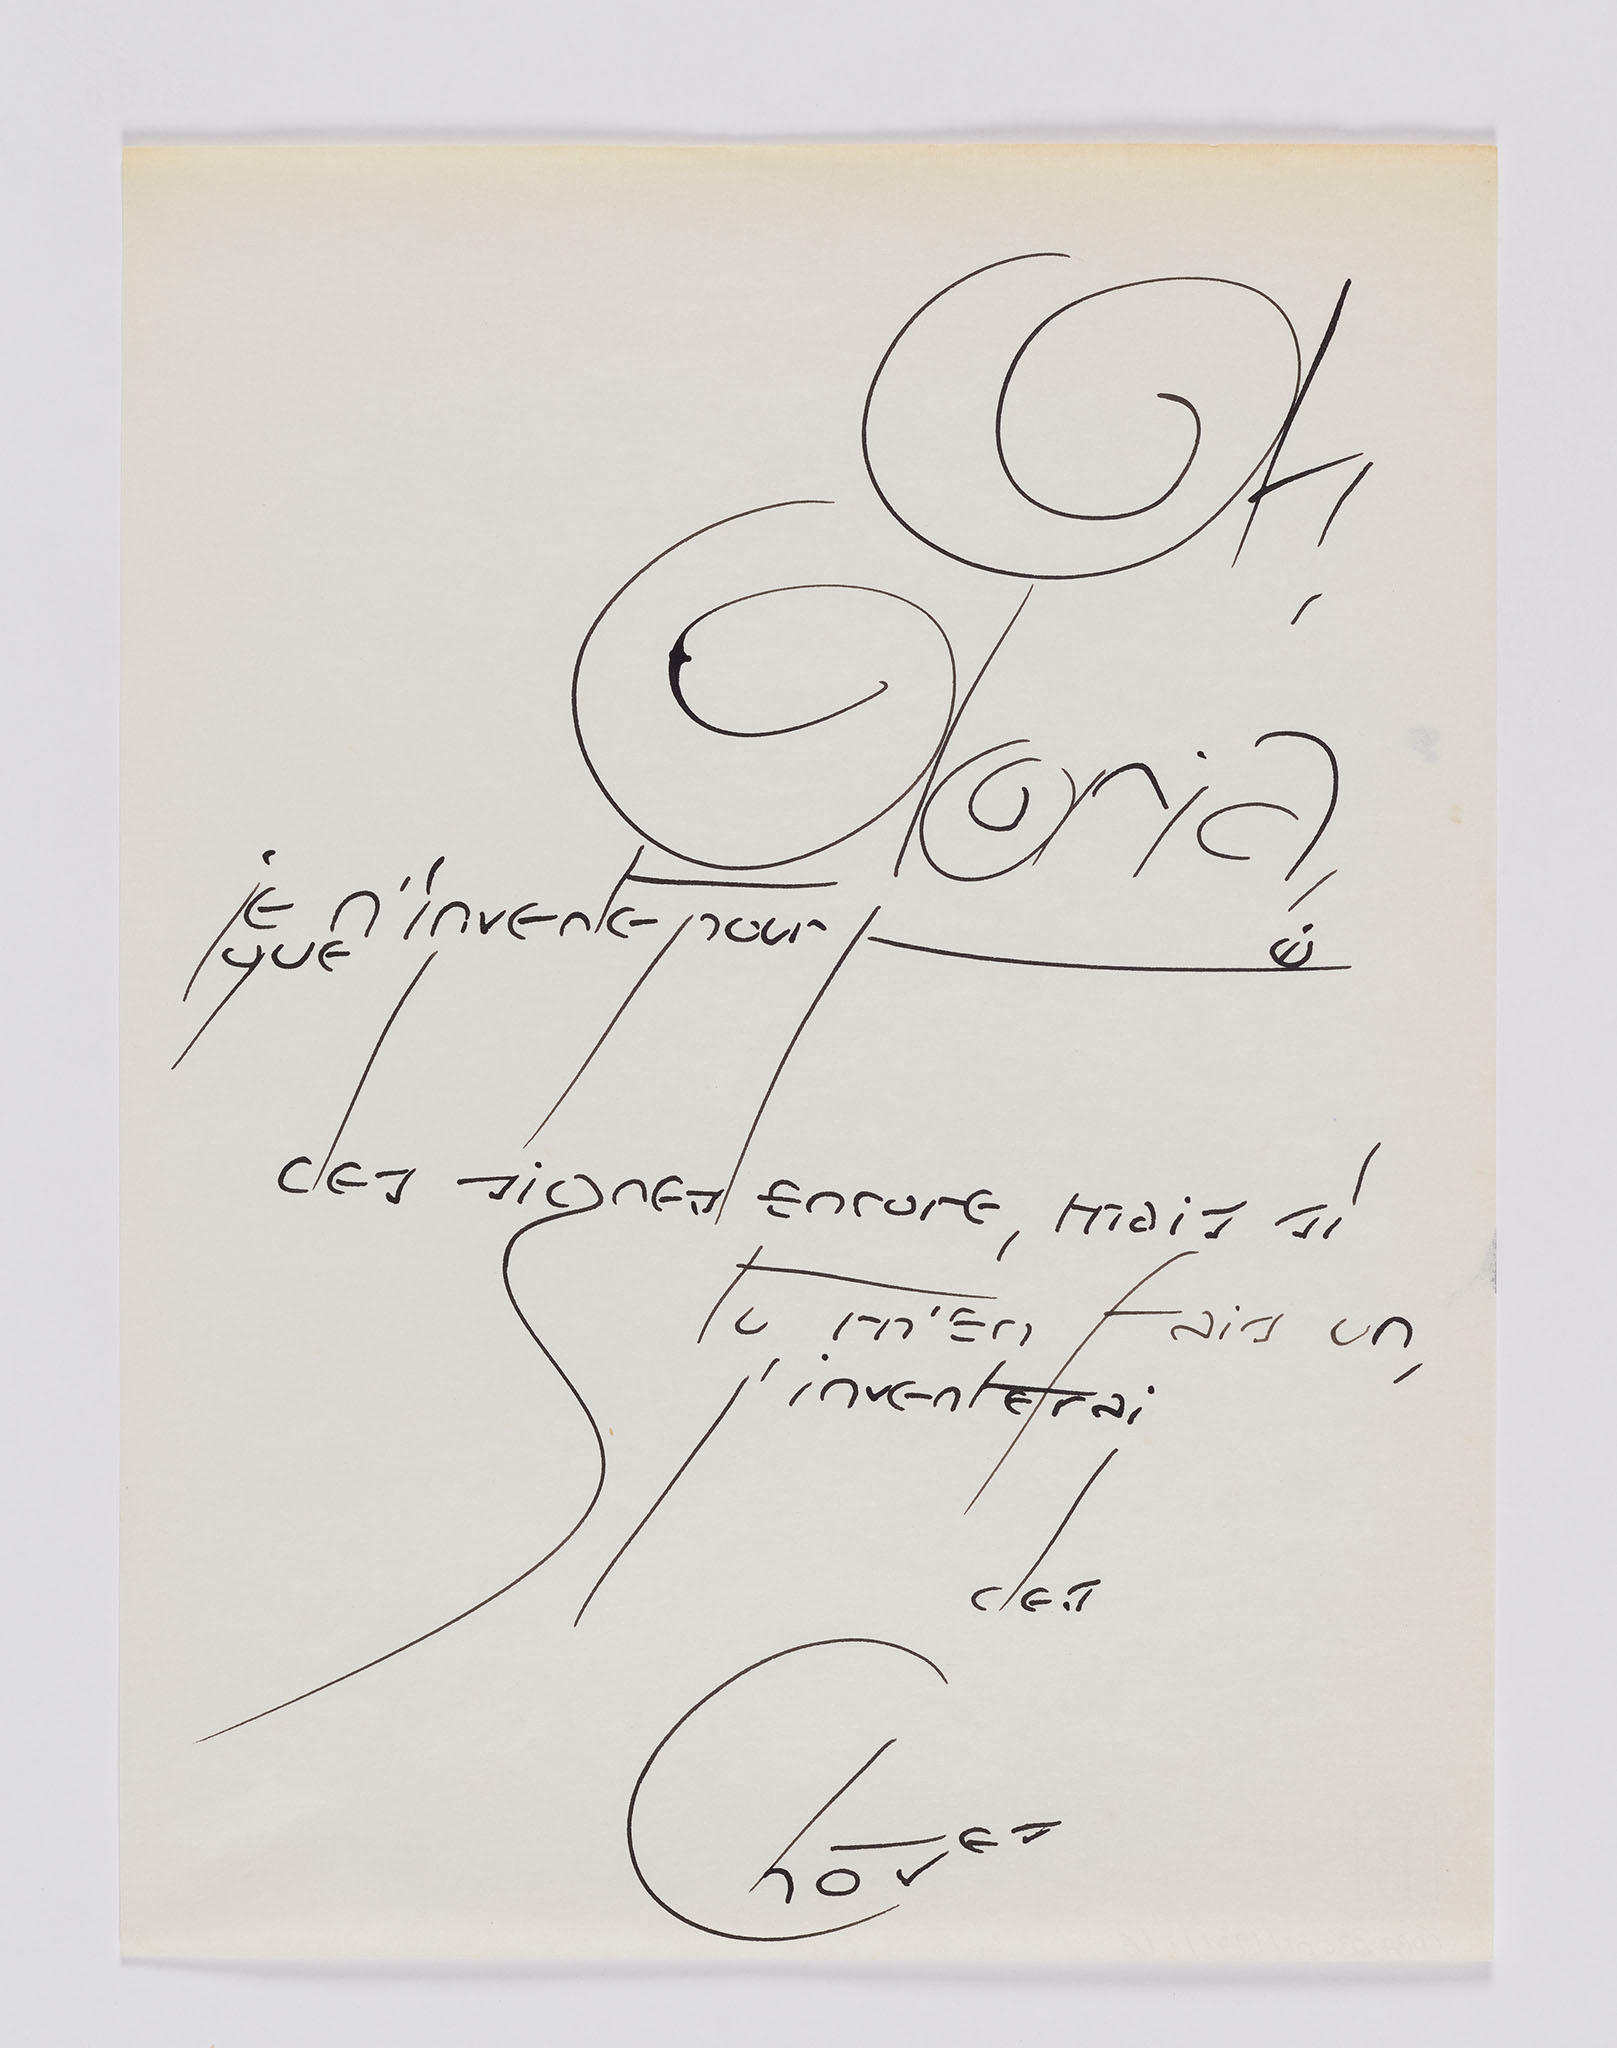 Oh,
Gloria,
je n'invente pour toi
que
des signes encore, mais si
tu m'en fais un,
j'inventerai
des
Choses